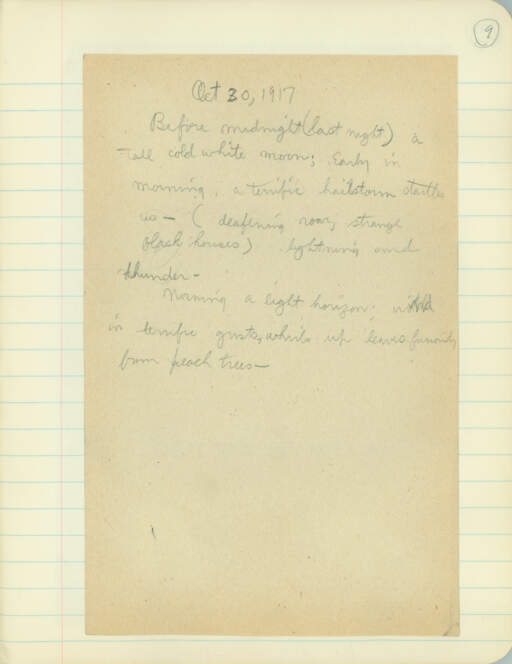 9
Oct 30, 1917
Before midnight (last night) a
tall cold white moon; Early in
morning, a terrific hailstorm startles
us — ( deafening roar, strange
black houses) lightning and
thunder —
Morning a light horizon; wind
in terrific gusts, whirls up leaves furiously
from peach trees —